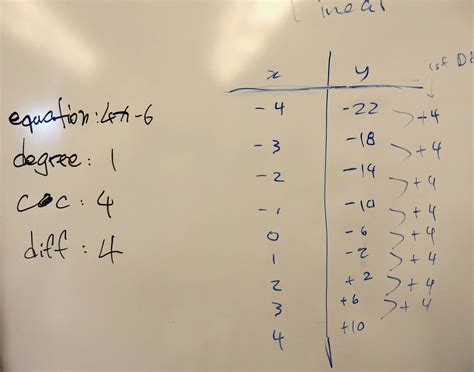 Linear
x y 1st D
-4 -22 +4
-3 -18 +4
-2 -14 +4
-1 -10 +4
0 -6 +4
1 -2 +4
2 +2 +4
3 +6 +4
4 +10
equation: 4x-6
degree: 1
coc: 4
diff: 4